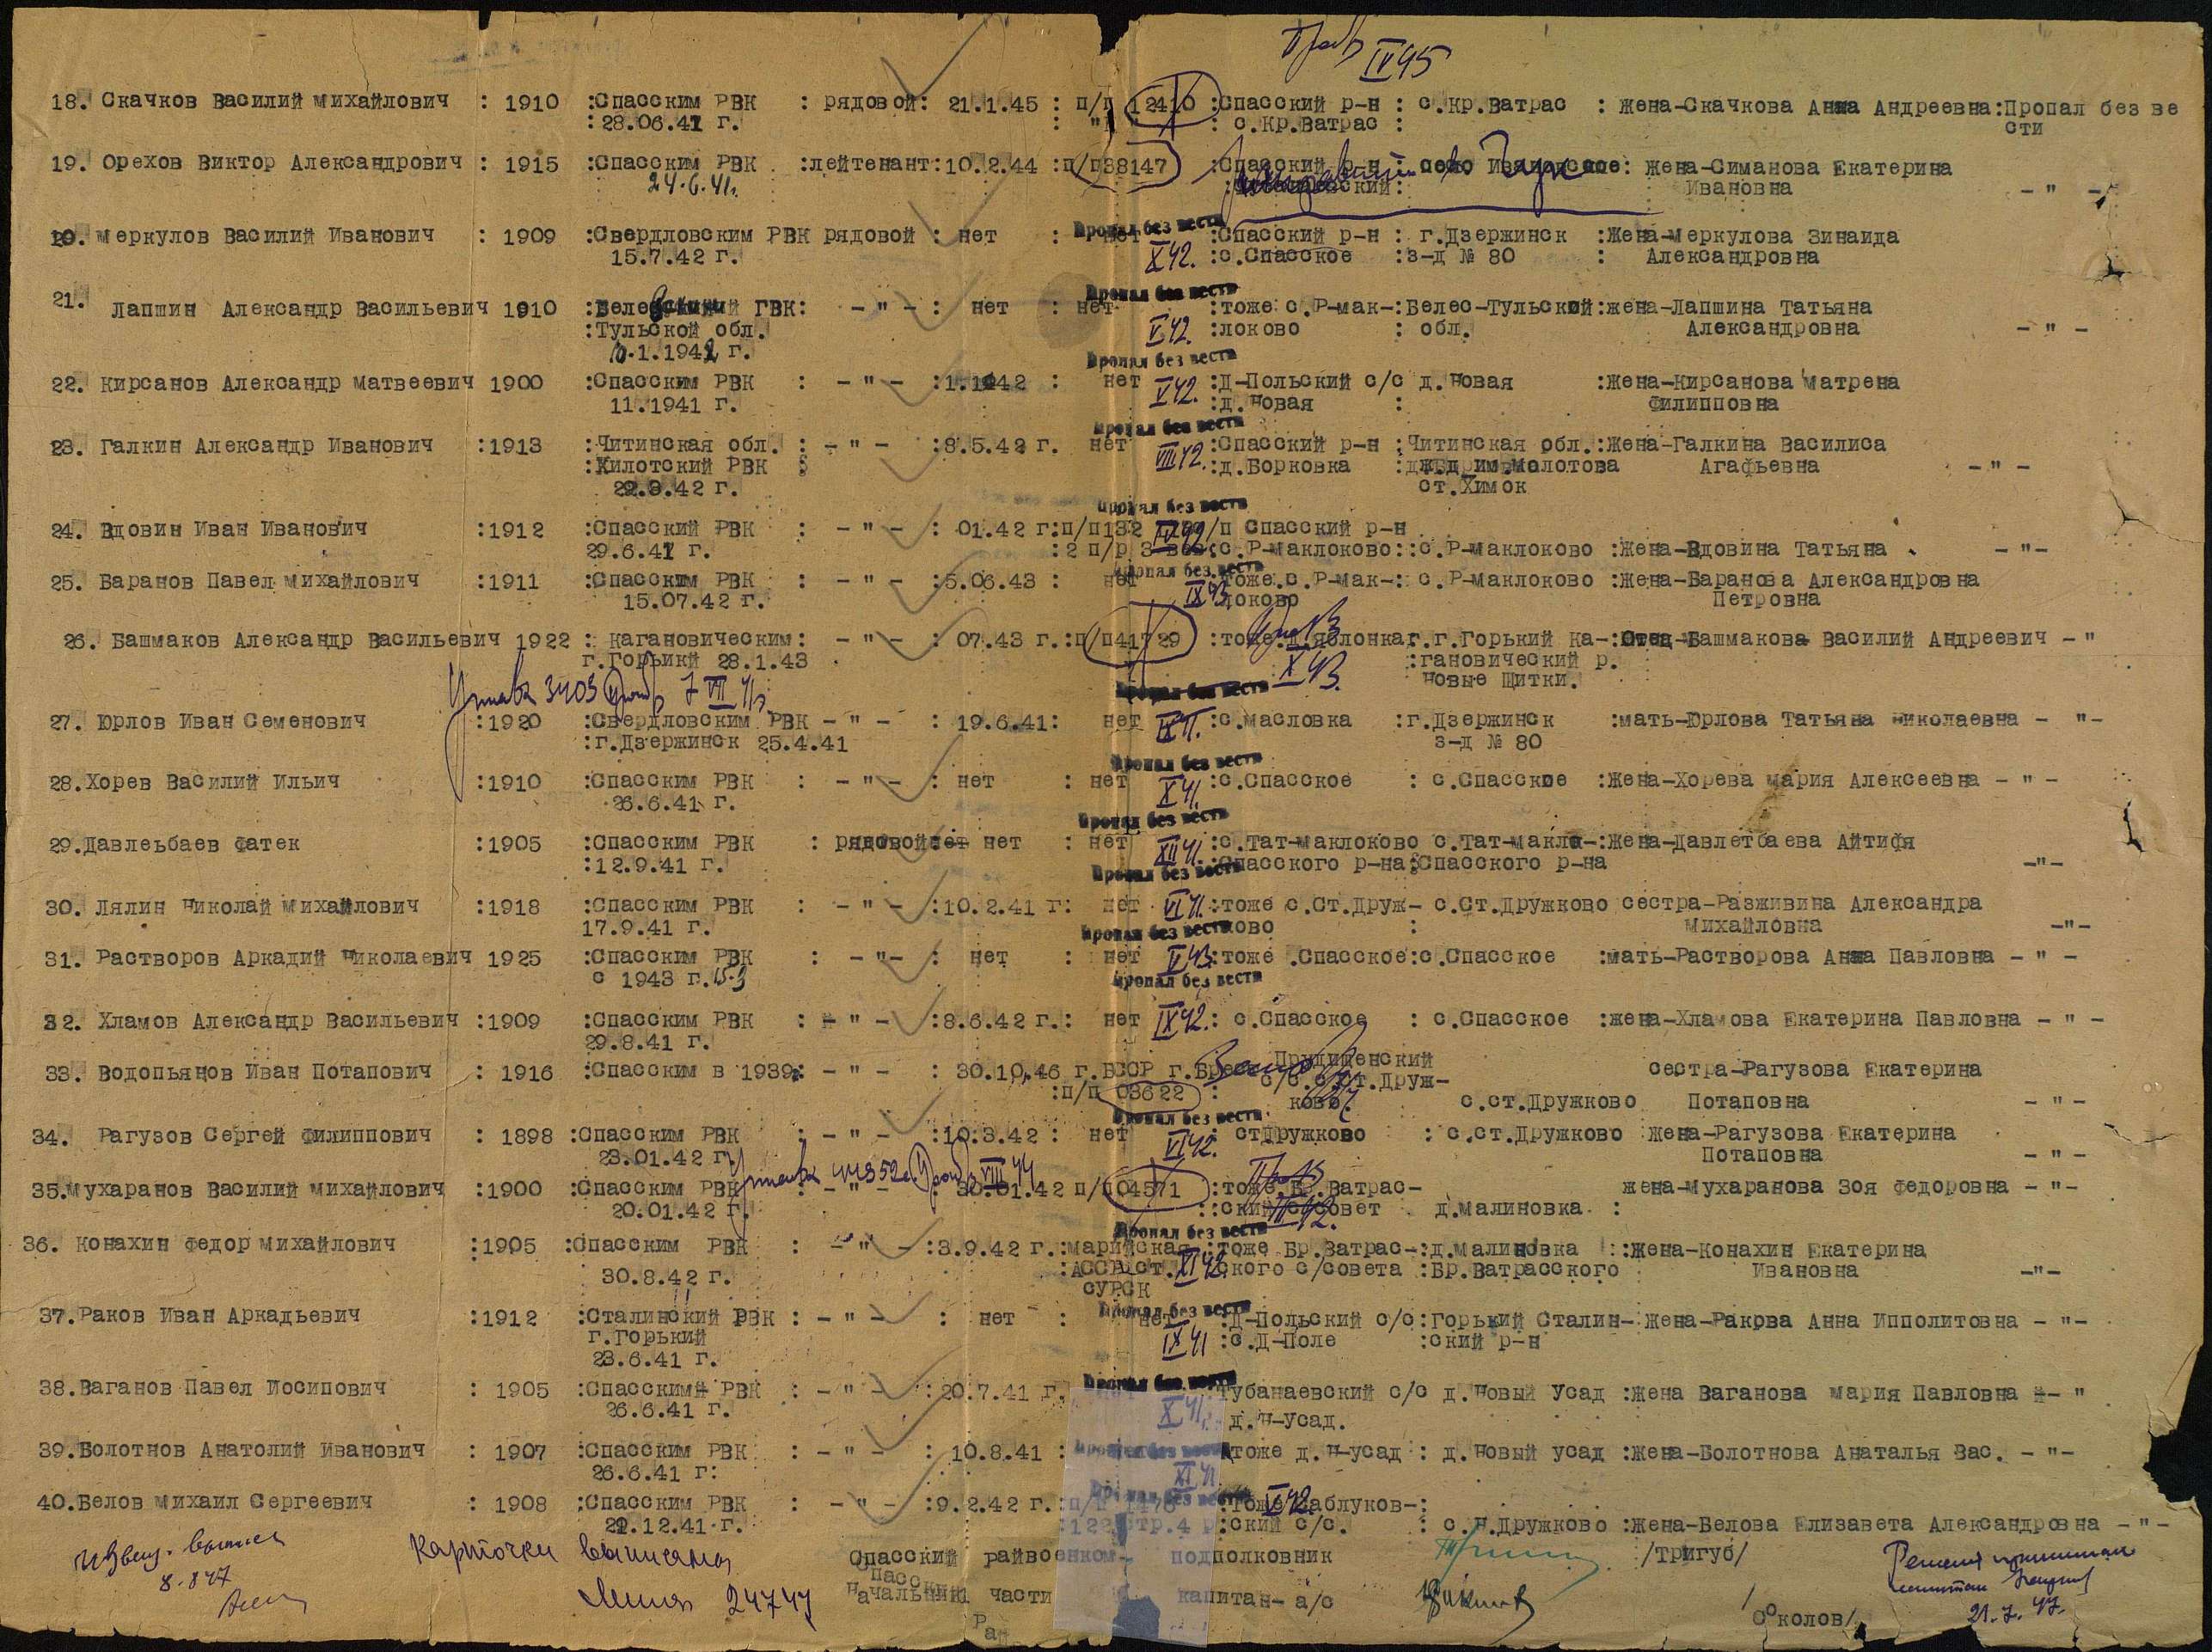 IV 45
18. Скачков Василий Михайлович : 1910 :Спасским РВК : рядовой: 21.1.45 : п/п 12410 :Спасский р-н : с.Кр.Ватрас : Жена-Скачкова Анна Андреевна:Пропал без ве
:28.06.41 г. : с.Кр.Ватрас : сти
19. Орехов Виктор Александрович : 1915 :Спасским РВК :лейтенант:10.2.44 :п/п38147 :Спасский р-н : село : Жена-Симанова Екатерина
24.6.41г. Ивановна - " -
Пропал без вести
20. Меркулов Василий Иванович : 1909 :Свердловским РВК рядовой : нет : нет :Спасский р-н : г.Дзержинск :Жена-Меркулова Зинаида
15.7.42 г. X 42. :с.Спасское :з-д № 80 : Александровна
Пропал без вести
21. Лапшин Александр Васильевич 1910 ГВК: - " - : нет : нет :тоже с.Р-мак-:Белес-Тульской:жена-Лапшина Татьяна
:Тульской обл. V 42. :локово : обл. Александровна - " -
.1.1942 г.
Пропал без вести
22. Кирсанов Александр Матвеевич 1900 :Спасским РВК : - " - :1.1942 : нет :Д-Польский с/с д.Новая :Жена-Кирсанова Матрена
11.1941 г. V 42. :д.Новая : Филипповна
Пропал без вести
23. Галкин Александр Иванович :1913 :Читинская обл. : - " - :8.5.42 г. нет :Спасский р-н :Читинская обл.:Жена-Галкина Василиса
:Хилотский РВК VIII 42. :д.Борковка им.Молотова Агафьевна - " -
22.9.42 г. ст.Химок
Пропал без вести
24. Вдовин Иван Иванович :1912 :Спасский РВК : - " - : 01.42 г:п/п132 /п Спасский р-н
29.6.41 г. :2 п/р с.Р-Маклоково::с.Р-Маклоково :Жена-Вдовина Татьяна - " -
Пропал без вести
25. Баранов Павел Михайлович :1911 :Спасским РВК : - " - :5.06.43 : нет тоже.с.Р-мак-: с.Р-Маклоково :Жена-Баранова Александровна
15.07.42 г. IX 43 локово Петровна
26. Башмаков Александр Васильевич 1922 : Кагановическим: - " - : 07.43 г.:п/п41729 :тоже.д.Яблонка г.Горький Ка-:Отец-Башмакова Василий Андреевич - "
г.Горьикй 28.1.43 X 43. :гановический р.
Новые Щитки.
3403 7 VII 41г Пропал без вести
27. Юрлов Иван Семенович :1920 :Свердловским РВК - " - : 19.6.41: нет IX 41. :с.Масловка :г.Дзержинск :мать-Юрлова Татьяна Николаевна - "-
:г.Дзержинск 25.4.41 з-д № 80
Пропал без вести
28.Хорев Василий Ильич :1910 :Спасским РВК : - " - : нет : нет :с.Спасское : с.Спасское :Жена-Хорева Мария Алексеевна - " -
26.6.41 г. X 41.
Пропал без вести
29.Давлеьбаев Фатек :1905 :Спасским РВК : рядовой: нет : нет :с.Тат-Маклоково с.Тат-Макло-:Жена-Давлетбаева Айтифя
:12.9.41 г. XII 41. :Спасского р-на:Спасского р-на -"-
Пропал без вести
30. Лялин Николай Михайлович :1918 :Спасским РВК : - " - :10.2.41 г: нет VI 41. :тоже с.Ст.Друж- с.Ст.Дружково сестра-Разживина Александра
17.9.41 г. ково : Михайловна -"-
Пропал без вести
31. Растворов Аркадий Николаевич 1925 :Спасским РВК : - "- : нет : нет V 43. :тоже .Спасское:с.Спасское :мать-Растворова Анна Павловна - " -
с 1943 г.
Пропал без вести
32. Хламов Александр Васильевич :1909 :Спасским РВК : - " - :8.6.42 г.: нет IX 42. : с.Спасское : с.Спасское :жена-Хламова Екатерина Павловна - " -
29.8.41 г.
33. Водопьянов Иван Потапович : 1916 :Спасским в 1939: - " - : 30.10.46 г.БССР Прудищенский сестра-Рагузова Екатерина
:п/п 03622 : с/с. с.Ст.Друж-
ково. с.ст.Дружково Потаповна - " -
Пропал без вести
34. Рагузов Сергей Филиппович : 1898 :Спасским РВК : - " - :10.3.42 : нет : стДружково : с.ст.Дружково Жена-Рагузова Екатерина
23.01.42 г. VI 42. Потаповна - " -
VIII 44
35.Мухаранов Василий Михайлович :1900 :Спасским РВК : - " - 30.01.42 п/п04571 :тоже.Бр.Ватрас- жена-Мухаранова Зоя Федоровна - "-
20.01.42 г. ::ский с/совет д.Малиновка :
Пропал без вести
36. Конахин Федор Михайлович :1905 :Спасским РВК : - " - :3.9.42 г.:Марийская :тоже Бр.Ватрас-:д.Малиновка ::Жена-Конахин Екатерина
30.8.42 г. :АССР ст. XI 42 ского с/совета :Бр.Ватрасского Ивановна -"-
СУРСК
Пропал без вести
37.Раков Иван Аркадьевич :1912 :Сталинский РВК : - " - : нет : нет :Д-Польский с/с:Горький Сталин-:Жена-Ракова Анна Ипполитовна - "-
г.Горький IX 41 :с.Д-Поле :ский р-н
23.6.41 г.
Пропал без вести
38.Ваганов Павел Иосипович : 1905 :Спасским РВК : - " - :20.7.41 г. Тубанаевский с/с д.Новый Усад :Жена Ваганова Мария Павловна - "
26.6.41 г. X 41. д.Н-Усад.
Пропал без вести
39.Болотнов Анатолий Иванович : 1907 :Спасским РВК : - " - : 10.8.41 : тоже д.Н-усад : д.Новый усад :Жена-Болотнова Анаталья Вас. - "-
26.6.41 г: XI 41
Пропал без вести
40.Белов Михаил Сергеевич : 1908 :Спасским РВК : - " - :9.2.42 г.:п/п 1476 :Тоже Саблуков-:
.12.41 г. :122 стр.4 :ский с/с. V 42. : с.Н.Дружково :Жена-Белова Елизавета Александровна - "-
Извещ. выписан Карточки выписаны Спасский райвоенком- подполковник /Тригуб/ Решения
8.8 47 24747 Начальник 1 части капитан- а/с
Спасский
/Околов/ 21.7.47.
Ра